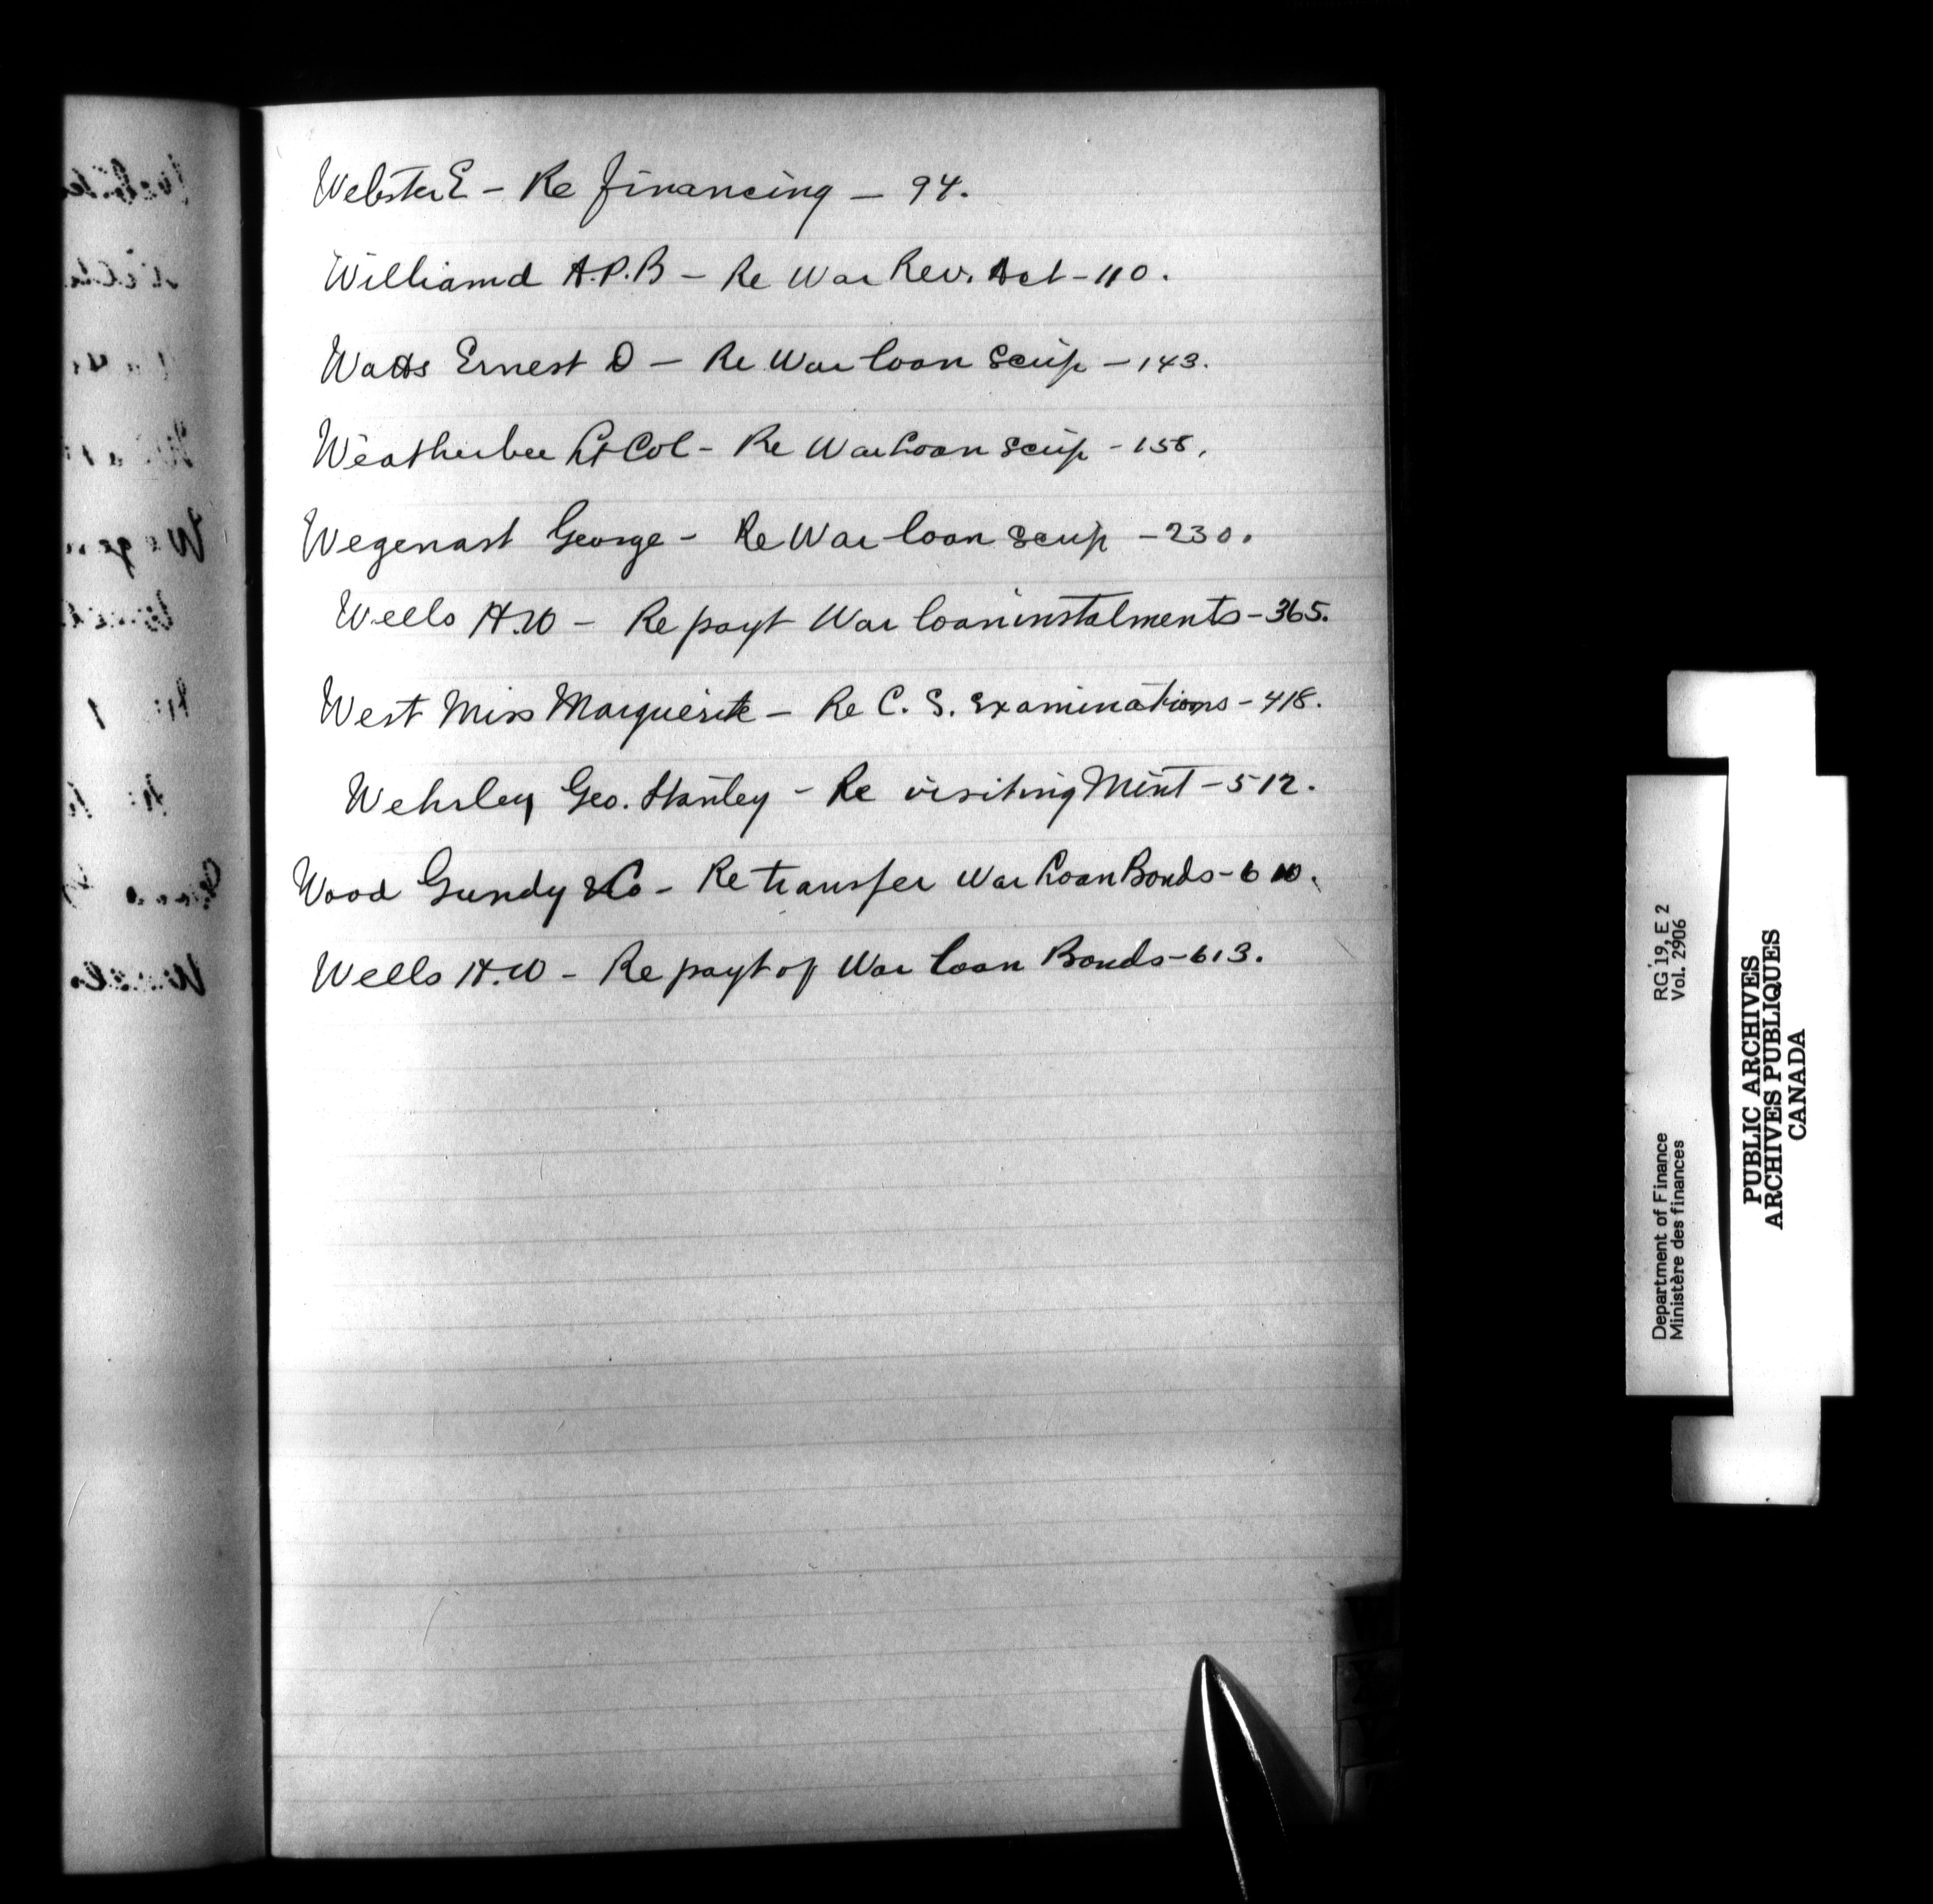 Webster E - Re financing - 94.
Williamd A.P.B - Re War Rev. Act - 110.
Watts Ernest D - Re War loan Scrip - 143.
Weatherbee Lt Col - Re War Loan Scrip - 158.
Wegenast George - Re War loan Scrip - 230.
Wells H.W - Re payt War loan instalments - 365.
West Miss Marguerite - Re C. S. Examinations - 418.
Wehrley Geo. Stanley - Re visiting Mint - 512.
Wood Gundy & Co - Re transfer War Loan Bonds - 610.
Wells H.W - Re payt of War loan Bonds - 613.
Department of Finance RG 19, E 2
Ministère des finances Vol. 2906
PUBLIC ARCHIVES
ARCHIVES PUBLIQUES
CANADA